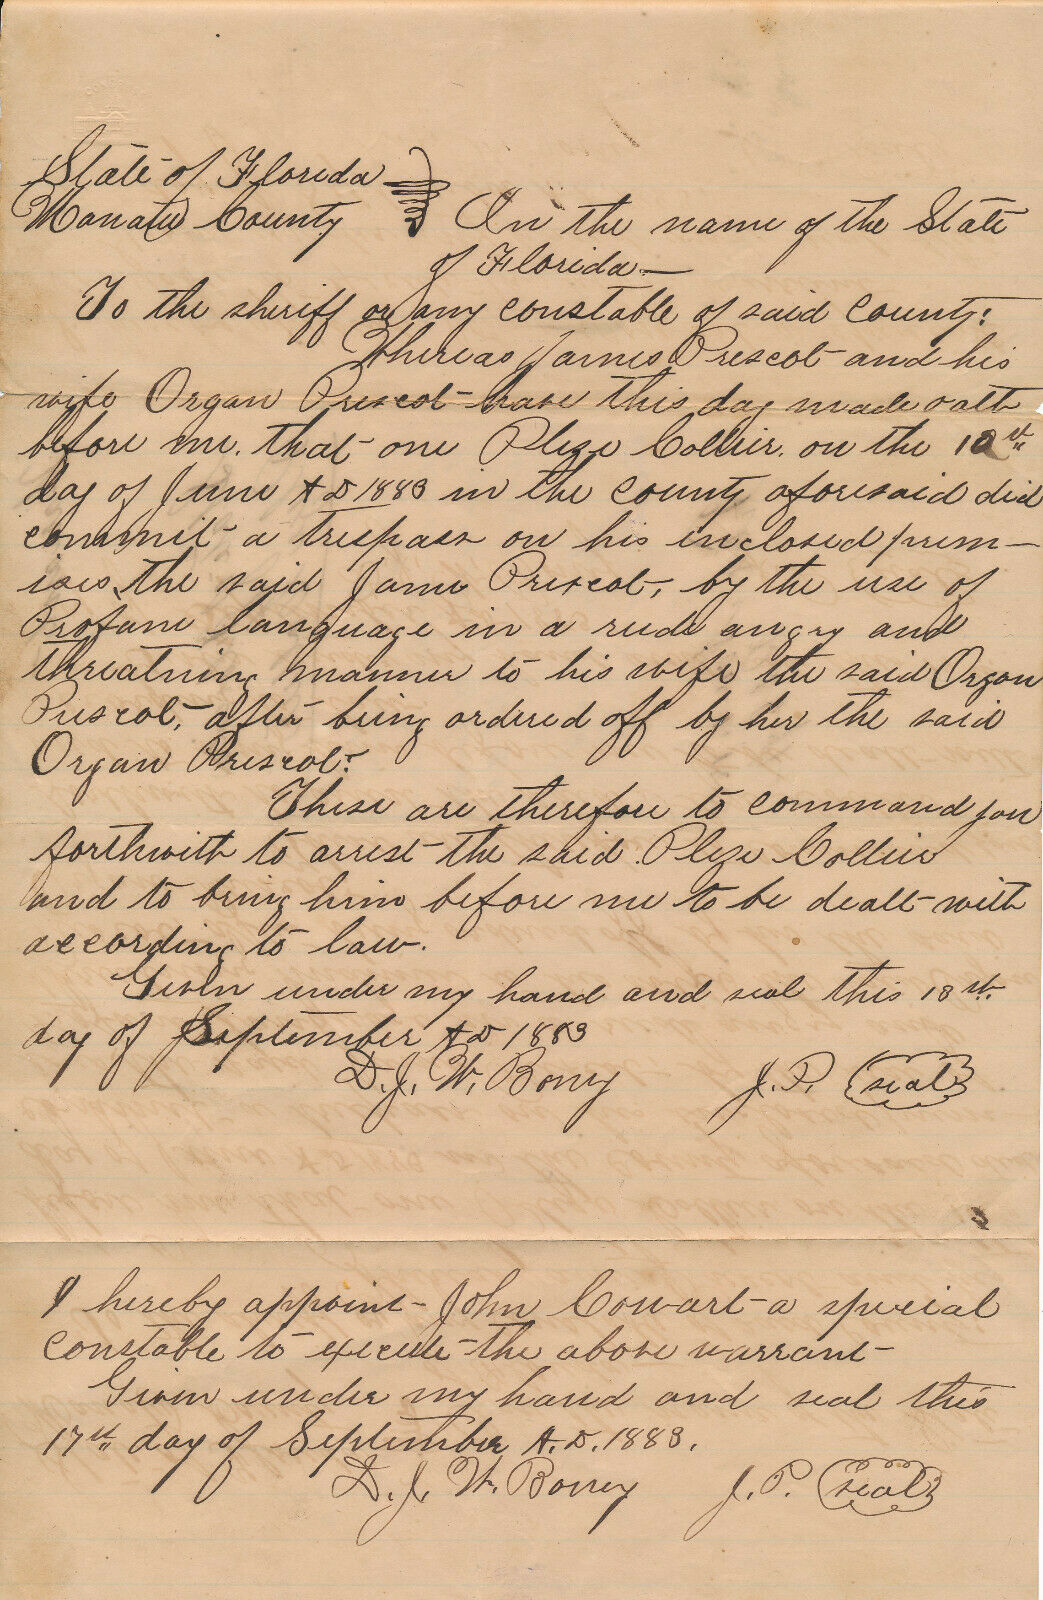 State of Florida
Manatee County In the name of the State
of Florida—
To the sheriff or any constable of said county:
Whereas James Prescot and his
wife Organ Prescot have this day made oath
before me. that one Pleze Collier. on the 10th
day of June AD 1883 in the county aforesaid did
commit a trespass on his inclosed prem-
ises, the said Jame Prescot, by the use of
Profane language in a rude angry and
threatning manner to his wife the said Organ
Prescot, after being ordered off by her the said
Organ Prescot.
These are therefore to command you
forthwith to arrest the said Pleze Collier
and to bring him before me to be dealt with
according to law.
Given under my hand and seal this 18th
day of September AD 1883
D. J. W. J. P. seal
I hereby appoint John Cowart a special
constable to execute the above warrant
Given under my hand and seal this
17th day of September A.D. 1883.
D. J. W. J. P. seal